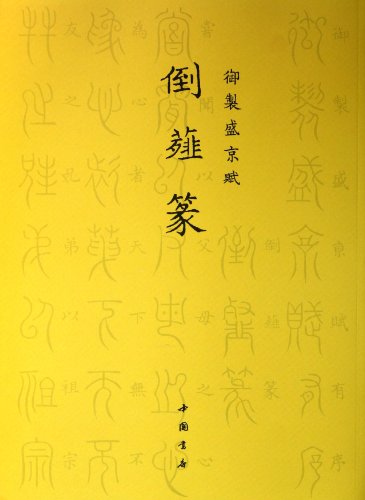 御製盛京賦
倒薤篆
御製盛京賦有序
倒薤篆
嘗聞以父母之心
為心者天下無不
友之兄弟以祖宗
中国书店